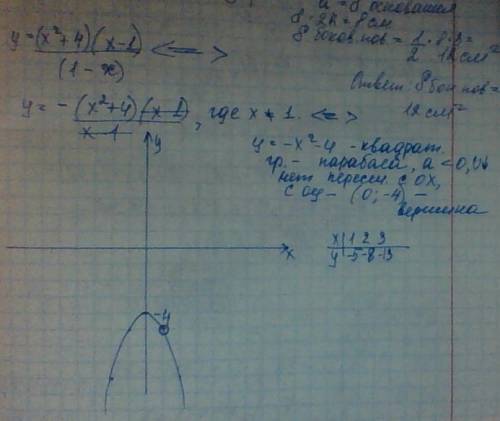 a = P основания
P = 2h = 8 см
S боков. пов = 1/2 · 8 · 3 =
12 см²
Ответ: S бок пов =
12 см²
y = (x²+4)(x-1) / (1-x) <=>
y = - (x²+4)(x-1) / x-1, где x ≠ 1. <=>
y = -x²-4 - квадрат.
гр. - парабола, a < 0, ↓
нет пересеч. с OX,
с OY - (0; -4) -
вершина
x | 1 2 3
y | -5 -8 -13
y
x
-4